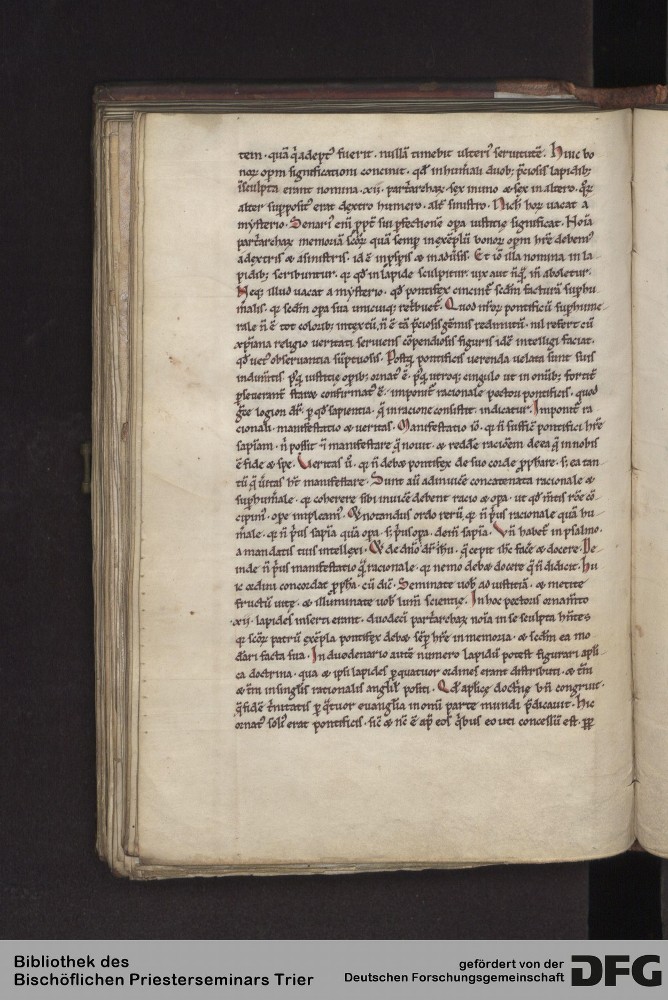 tem. quā q adept' fuerit. nullā timebit ulteri' seruitutē. Huic bo
noꝝ opm significationi concinit. qđ inhumali duob; p̄ciosis lapidib;
īsculpta erant nomina .xii. patriarchaꝝ. sex in uno & sex in altero. 
alter supposit' erat dextro humero. alt' sinistro. Nec h' uacat a
mysterio. Senari' eni ꝓpt' sui ꝑfectionē opa iustitię significat. Noīa
patriarchaꝝ memoriā scōꝝ quā semp in exēplū bonoꝝ opm hr̄e debem'
a dextris & a sinistris. id ē in ꝓspis & in aduisis. Et iō illa nomina in la
pidib; scribuntur. qꝛ qđ in lapide sculpitur. uix aut nūq̄ aboletur.
Neq; illud uacat a mysterio. qđ pontifex cincint' scdm facturā suphu
malis. qꝛ scdm opa sua unicuiq; retbuet'. Quod nr̄oꝝ pontificū suphume
rale n̄ ē tot colorib; intextū, n̄ ē tā p̄ciosis gēmis redimitū. nil refert cū
xp̄iana religio ueritati seruiens cōpendiosis figuris idē intelligi faciat.
qđ uet' obseruantia sūptuosis. Postq̄ pontificis uerenda uelata sunt suis
indumtis pq̄ iustitię opib; ornat' ē. pq̄ utroq; cingulo ut in omib; fortit'
pseuerant' stare confirmat' ē. imponit' racionale pectori pontificis. quod
gr̄ce logion dr̄. p qđ sapientia. q̄ in racione consistit. indicatur. Imponit' ra
cionali. manifestatio & ueritas. Manifestatio iō. qꝛ n̄ suffic' pontifici hr̄e
sapiam. n' possit 7 manifestare q̄ nouit. & reddē racioēm de ea q̄ in nobis
ē fide & spe. Veritas u'. qꝛ n̄ debet pontifex de suo corde ꝓphare. s; ea tan
tū q̄ uitas ht' manifestare. Sunt au adinuicē concatenata racionale &
suphumale. qꝛ coherere sibi inuicē debent racio & opa. ut qđ mtis rōe cō
cipim'. ope impleam'. Et notandus ordo rerū. qꝛ n̄ p'us racionale quā hu
male. qꝛ n̄ p'us sapia quā opa. s; p'us opa. dein sapia. Vn̄ habet' in psalmo.
a mandatis tuis intellexi. Et de dn̄o dr̄. ihu. q̄ cepit ihc face & docere. De
inde n̄ p'us manifestatio q̄ racionale. qꝛ nemo debet docere q̄ n̄ didicit. Hu
ic ordini concordat ꝓpha. cū dic'. Seminate uob' ad iustitiā. & metite
fructū uitę. & illuminate uob' lum scientię. In hoc pectoris ornamto
.xii. lapides inserti erant. duodeci patriarchaꝝ noīa in se sculpta hntes
qꝛ scōꝝ patrū exēpla pontifex debet sep hr̄e in memoria. & scdm ea mo
darī facta sua. In duodenario autē numero lapidū potest figurari apli
ca doctrina. qua & ipsi lapides ꝑ quatuor ordines erant distributi. & tm
& tm in singlis rationalis anglis positi. Qđ aplicę doctnę bn̄ congruit.
q̄ fidē tnitatis ꝑ q̄tuor euanglia in omi parte mundi p̄dicauit. Hic
ornat' soli' erat pontificis. sic & nc̄ ē ap' eos qbus eo uti concessū est. ꝓꝑ
Bibliothek des
Bischöflichen Priesterseminars Trier
gefördert von der
Deutschen Forschungsgemeinschaft
DFG